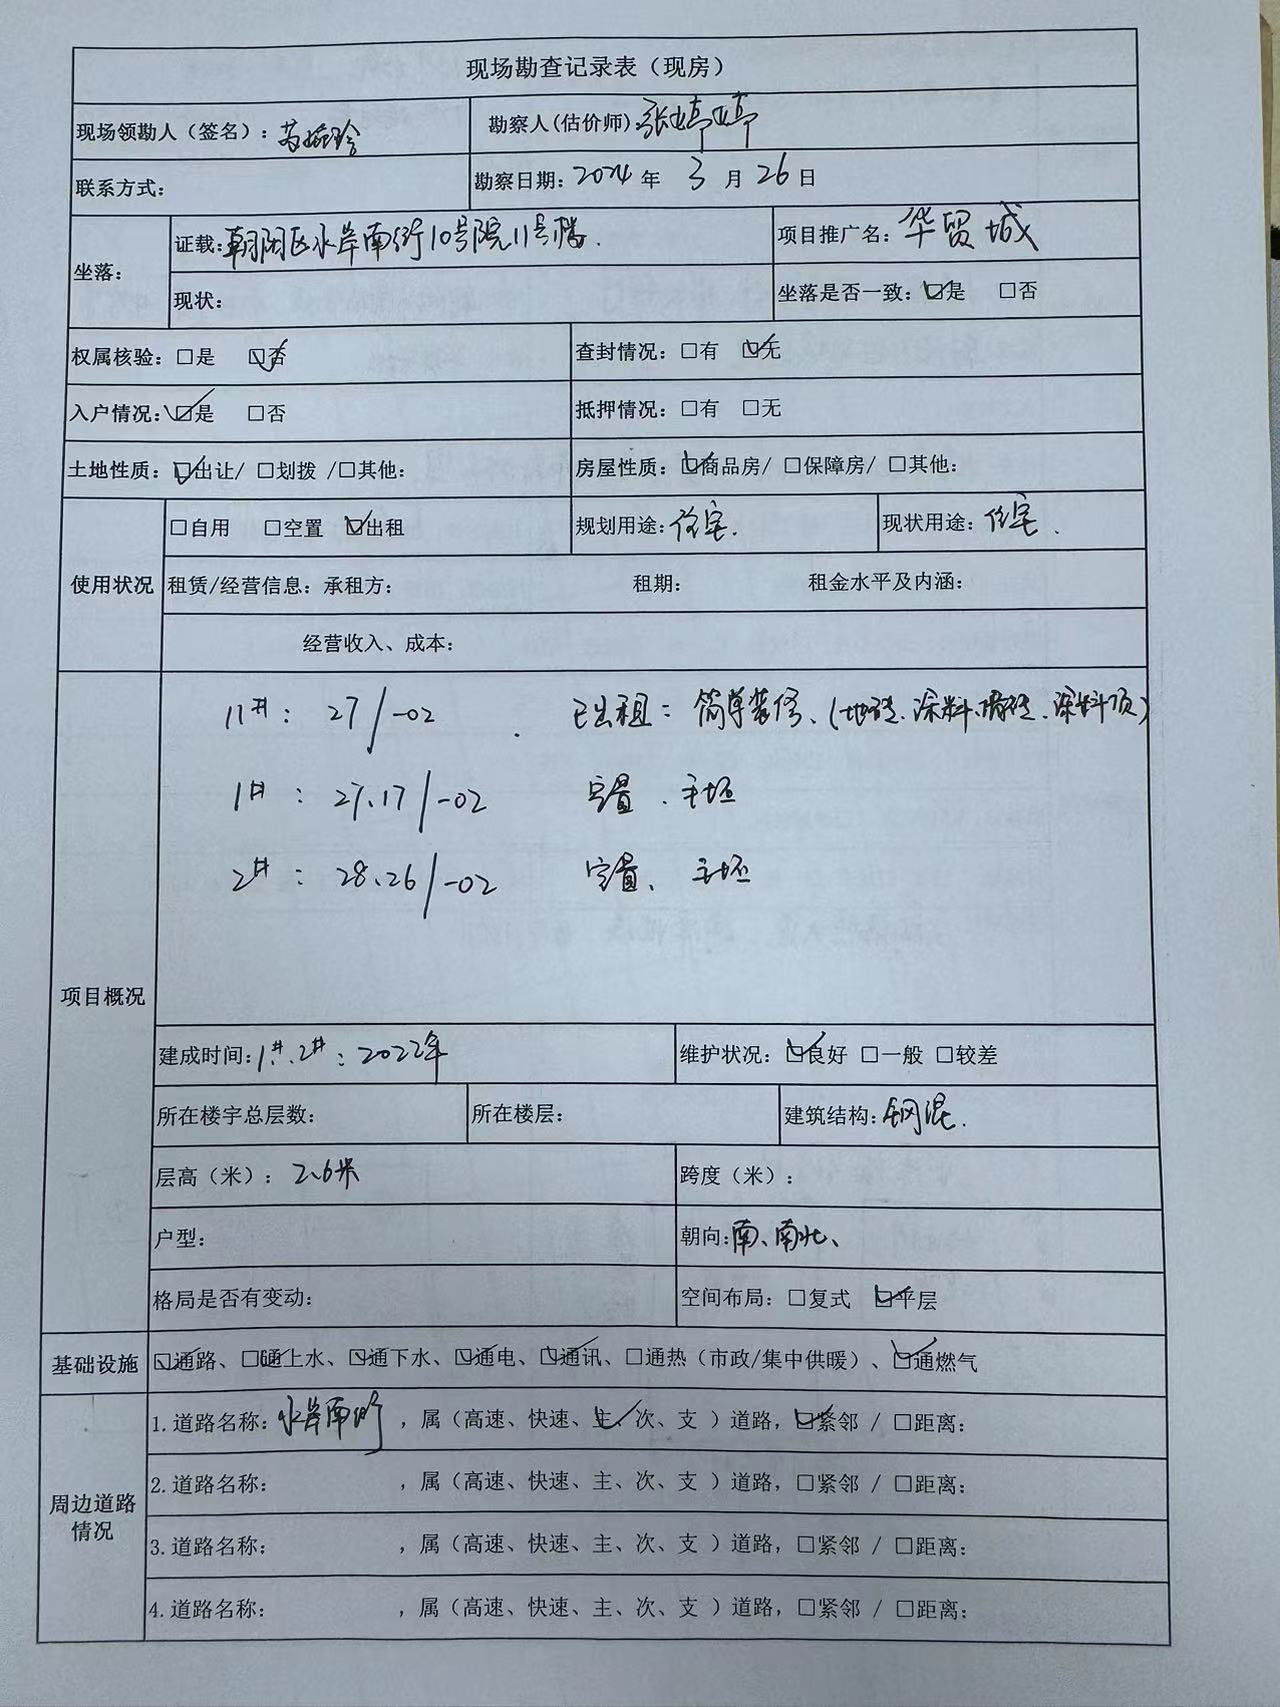 现场勘查记录表（现房）
现场领勘人（签名）： 勘察人(估价师):张婷婷
联系方式： 勘察日期：2024年 3月26日
坐落： 证载：朝阳区水岸南街10号院11号楼. 项目推广名：华贸城
现状： 坐落是否一致：☑是 □否
权属核验：□是 ☑否 查封情况：□有 ☑无
入户情况：☑是 □否 抵押情况：□有 □无
土地性质：☑出让/ □划拨 /□其他： 房屋性质：☑商品房/ □保障房/ □其他：
使用状况 □自用 □空置 ☑出租 规划用途：住宅. 现状用途：住宅.
租赁/经营信息：承租方： 租期： 租金水平及内涵：
经营收入、成本：
项目概况
11#： 27/-02 . 已出租：简单装修、(地砖、涂料、墙砖、涂料顶)
1#： 27、17/-02 空置、毛坯
2#： 28、26/-02 空置、毛坯
建成时间：1#、2#：2022年 维护状况：☑良好 □一般 □较差
所在楼宇总层数： 所在楼层： 建筑结构：钢混.
层高（米）：2.6米 跨度（米）：
户型： 朝向：南、南北、
格局是否有变动： 空间布局：□复式 ☑平层
基础设施 ☑通路、☑通上水、☑通下水、☑通电、☑通讯、□通热（市政/集中供暖）、☑通燃气
周边道路情况
1.道路名称：水岸南街，属（高速、快速、主✓、次、支 ）道路，☑紧邻 / □距离：
2.道路名称： ，属（高速、快速、主、次、支 ）道路，□紧邻 / □距离：
3.道路名称： ，属（高速、快速、主、次、支 ）道路，□紧邻 / □距离：
4.道路名称： ，属（高速、快速、主、次、支 ）道路，□紧邻 / □距离：